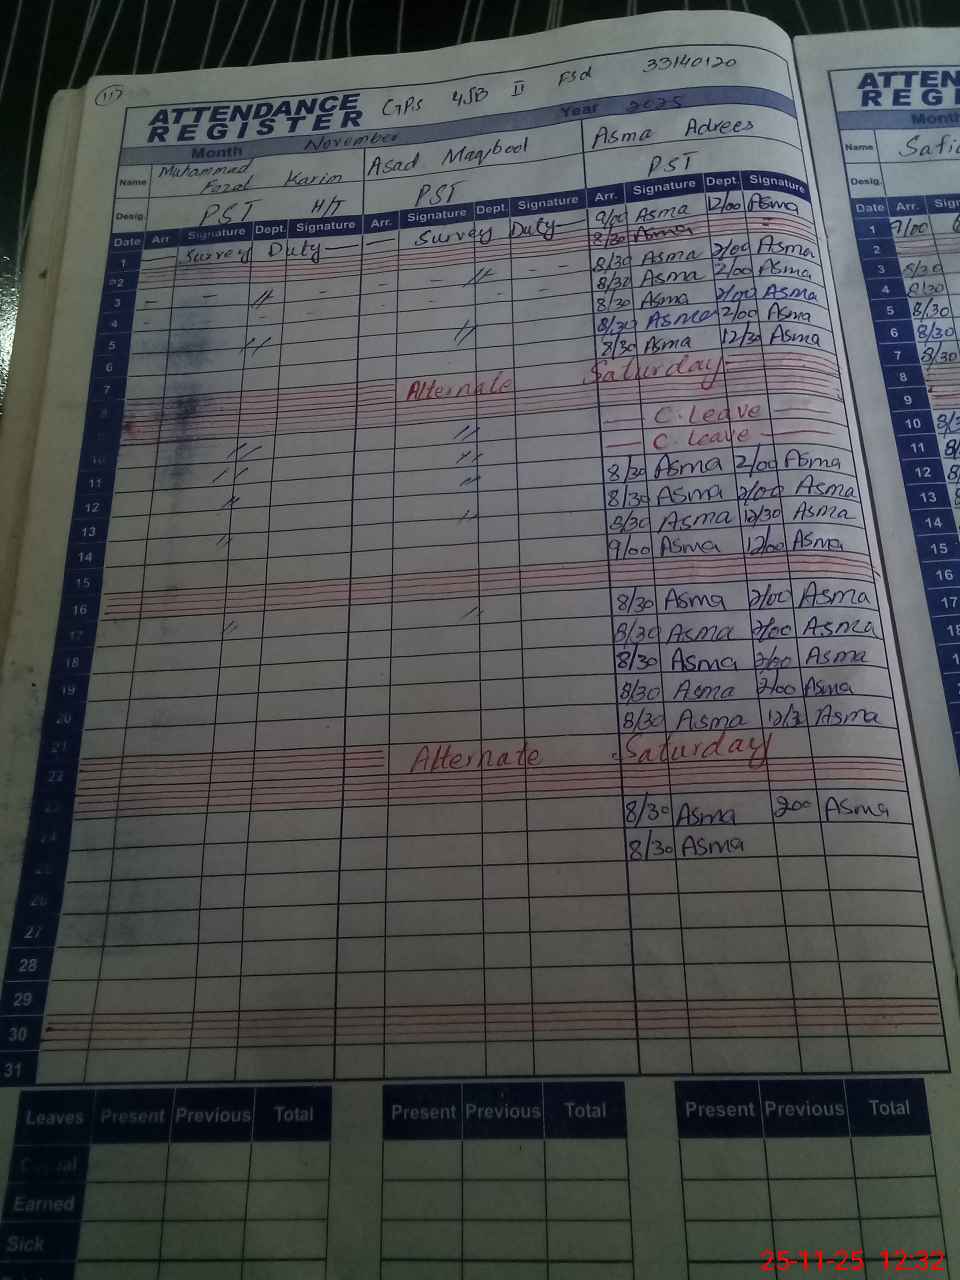 117
ATTENDANCE REGISTER GPS 4JB II FSd 33140120
Month November Year 2025
Name Muhammad Fazal Karim Asad Maqbool Asma Adrees
Desig. PST H/T PST PST
Date Arr. Signature Dept. Signature Arr. Signature Dept. Signature Arr. Signature Dept. Signature
1 Survey Duty Survey Duty 9/00 Asma 12/00 Asma
2 8/30 Asma
3 〃 〃 8/30 Asma 2/00 Asma
4 8/30 Asma 2/00 Asma
5 〃 〃 8/30 Asma 2/00 Asma
6 8/30 Asma 2/00 Asma
7 8/30 Asma 12/30 Asma
8 Alternate Saturday
10 〃 〃 C. Leave
11 〃 〃 C. Leave
12 〃 〃 8/30 Asma 2/00 Asma
13 〃 〃 8/30 Asma 2/00 Asma
14 8/30 Asma 12/30 Asma
15 9/00 Asma 12/00 Asma
16
17 〃 〃 8/30 Asma 2/00 Asma
18 8/30 Asma 2/00 Asma
19 8/30 Asma 2/00 Asma
20 8/30 Asma 2/00 Asma
21 8/30 Asma 12/30 Asma
22 Alternate Saturday
23
24 8/30 Asma 200 Asma
25 8/30 Asma
26
27
28
29
30
31
Leaves Present Previous Total Present Previous Total Present Previous Total
Casual
Earned
Sick
ATTEN
REGI
Month
Name Safi
Desig.
Date Arr. Sig
1 9/00
2
3 8/30
4 8/30
5 8/30
6 8/30
7 8/30
8
9
10 8/3
11 8/
12 8/
13
14
15
16
17
18
25-11-25 12:32